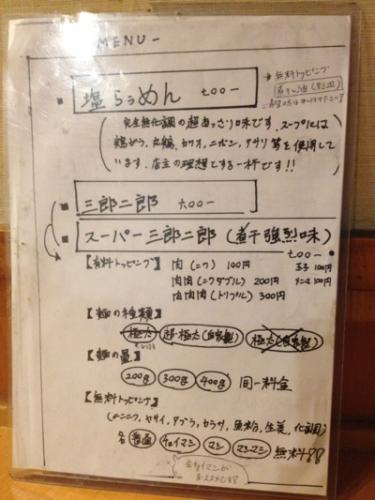 MENU-
塩らぁめん 700-
→無料トッピング
完全無化調の超あっさり味です。スープには
鶏がら、丸鶏、カツオ、ニボシ、アサリ等を使用して
います。店主の理想とする一杯です!!
三郎二郎 700-
スーパー三郎二郎(煮干強烈味)
700-
【有料トッピング】 肉(ニク) 100円 玉子 100円
肉肉(ニクダブル) 200円 メンマ 100円
肉肉肉(トリプル) 300円
【麺の種類】
極太 超・極太(自家製) 極太(自家製)
【麺の量】
200g 300g 400g 同一料金
【無料トッピング】
(ニンニク、ヤサイ、アブラ、カラサ、魚粉、生姜、化調)
各 普通 チョイマシ マシ マシマシ 無料